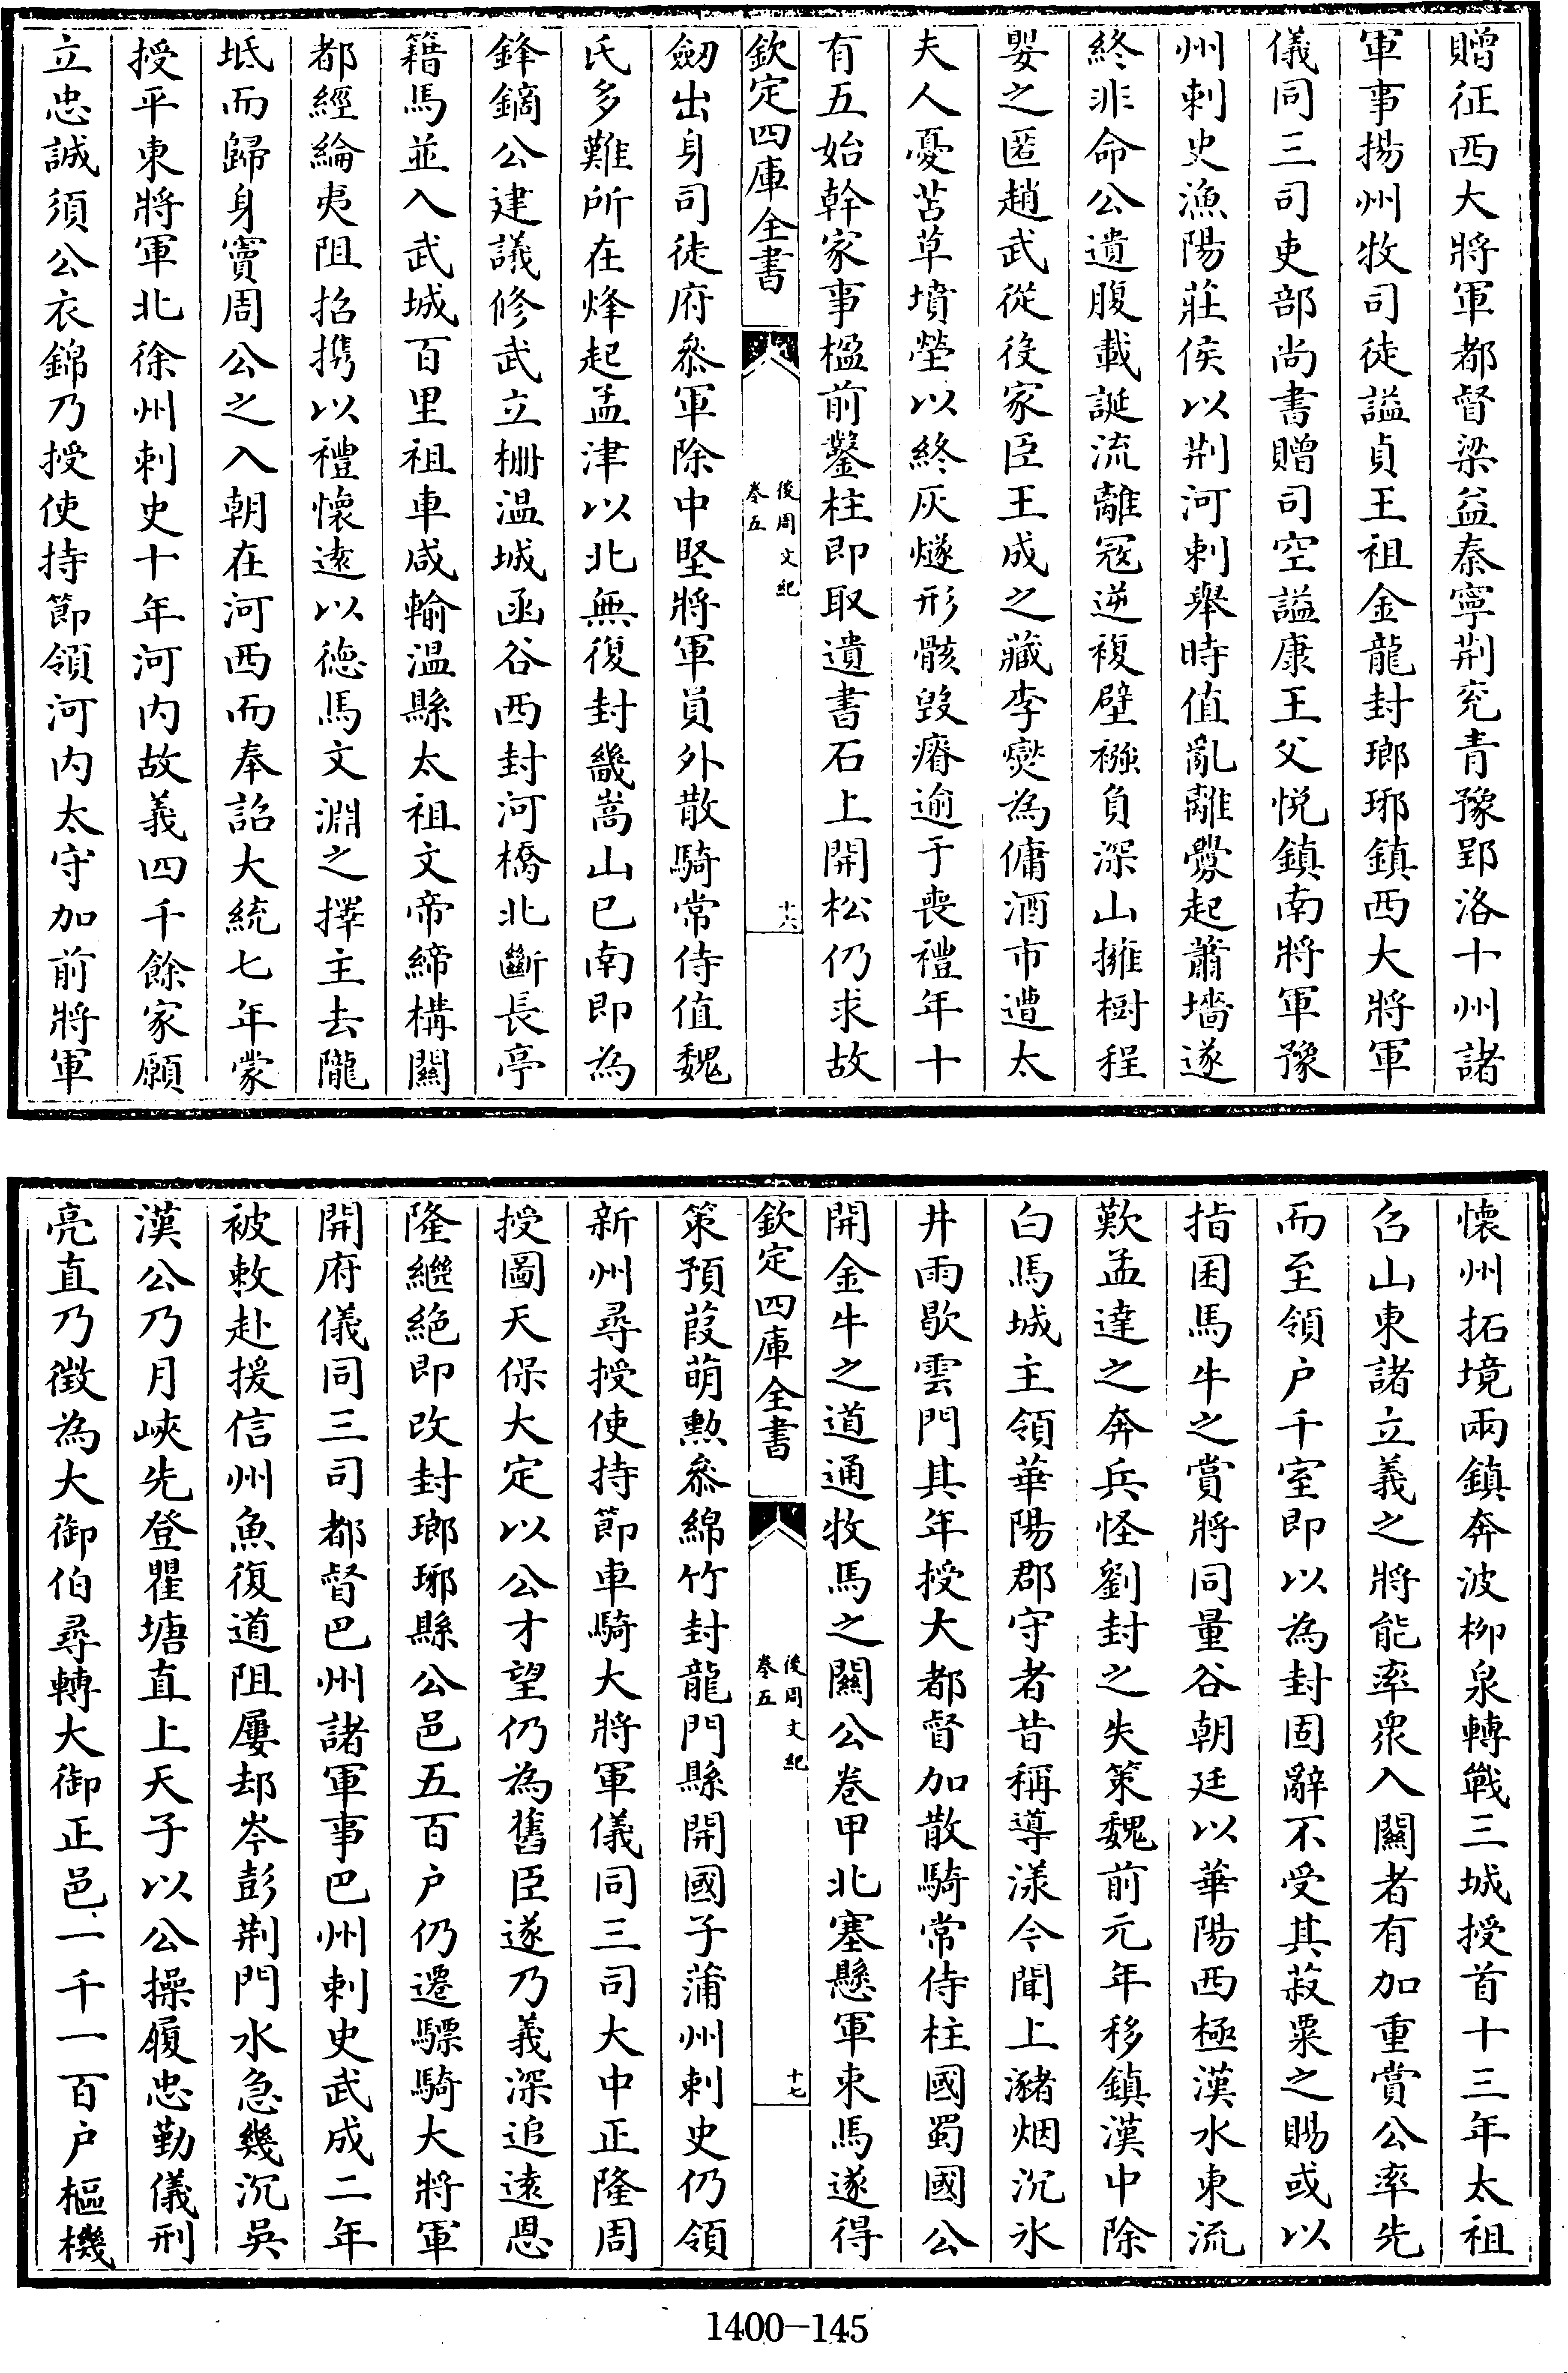 贈征西大將軍都督梁益秦寧荆兖青豫郢洛十州諸
軍事揚州牧司徒謚貞王祖金龍封瑯琊鎮西大將軍
儀同三司吏部尚書贈司空謚康王父悦鎮南將軍豫
州刺史漁陽莊侯以荆河刺舉時值亂離釁起蕭墻遂
終非命公遺腹載誕流離冦逆複壁襁負深山擁樹程
嬰之匿趙武從役家臣王成之藏李爕為傭酒市遭太
夫人憂苫草墳塋以終灰燧形骸毁瘠逾于喪禮年十
有五始幹家事楹前鑿柱即取遺書石上開松仍求故
欽定四庫全書
後周文紀
卷五
十六
劒出身司徒府叅軍除中堅將軍員外散騎常侍值魏
氏多難所在烽起孟津以北無復封畿嵩山已南即為
鋒鏑公建議修武立栅温城函谷西封河橋北斷長亭
籍馬並入武城百里祖車咸輸温縣太祖文帝締構關
都經綸夷阻招携以禮懷遠以德馬文淵之擇主去隴
坻而歸身竇周公之入朝在河西而奉詔大統七年蒙
授平東將軍北徐州刺史十年河内故義四千餘家願
立忠誠須公衣錦乃授使持節領河内太守加前將軍
懷州拓境兩鎮奔波柳泉轉戰三城授首十三年太祖
召山東諸立義之將能率衆入關者有加重賞公率先
而至領户千室即以為封固辭不受其菽粟之賜或以
指囷馬牛之賞將同量谷朝廷以華陽西極漢水東流
歎孟達之奔兵怪劉封之失策魏前元年移鎮漢中除
白馬城主領華陽郡守者昔稱導漾今聞上瀦烟沉氷
井雨歇雲門其年授大都督加散騎常侍柱國蜀國公
開金牛之道通牧馬之關公卷甲北塞懸軍束馬遂得
欽定四庫全書
後周文紀
卷五
十七
策預葭萌勲叅綿竹封龍門縣開國子蒲州刺史仍領
新州尋授使持節車騎大將軍儀同三司大中正隆周
授圖天保大定以公才望仍為舊臣遂乃義深追遠恩
隆繼絶即改封瑯琊縣公邑五百户仍遷驃騎大將軍
開府儀同三司都督巴州諸軍事巴州刺史武成二年
被敕赴援信州魚復道阻屢却岑彭荆門水急幾沉吳
漢公乃月峽先登瞿塘直上天子以公操履忠勤儀刑
亮直乃徵為大御伯尋轉大御正邑一千一百户樞機
1400-145